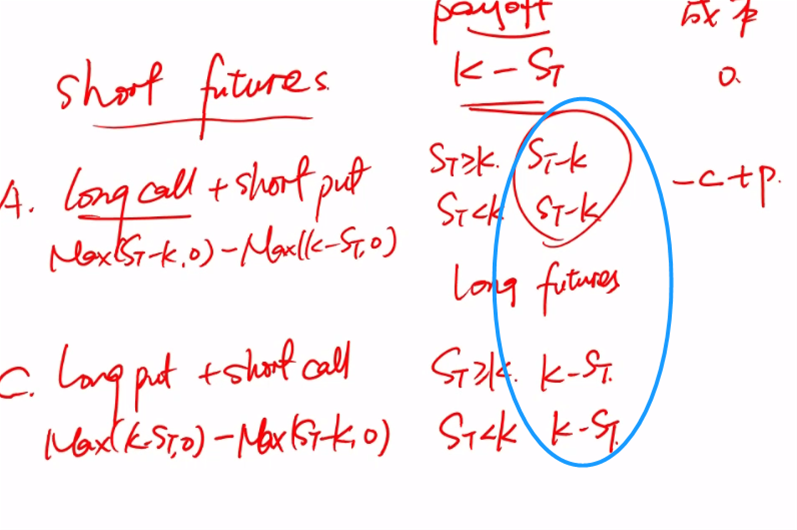 payoff 成本
short futures. K - S_T 0.
A. Long call + short put S_T≥K. S_T-K -C+P.
S_T<K S_T-K
Max(S_T-K,0)-Max((K-S_T,0)
Long futures
C. Long put + short call S_T≥K. K-S_T.
Max(K-S_T,0)-Max(S_T-K,0) S_T<K K-S_T.